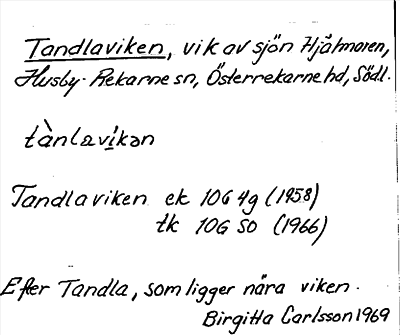 Tandlaviken, vik av sjön Hjälmaren,
Husby-Rekarne sn, Österrekarne hd, Södl.
tànlavíkən
Tandlaviken ek 10G 4g (1958)
tk 10G SO (1966)
Efter Tandla, som ligger nära viken.
Birgitta Carlsson 1969